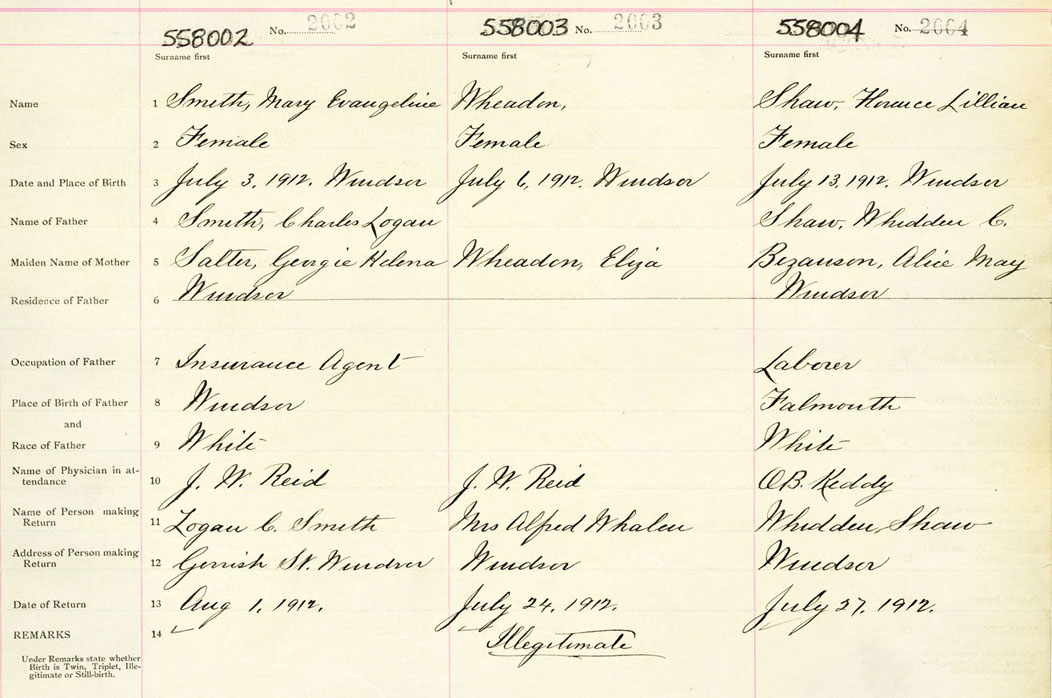 558002 No. 2002 558003 No. 2003 558004 No. 2004
Surname first Surname first Surname first
Name 1 Smith, Mary Evangeline Wheadon, Shaw, Florence Lillian
Sex 2 Female Female Female
Date and Place of Birth 3 July 3, 1912. Windsor July 6, 1912. Windsor July 13, 1912. Windsor
Name of Father 4 Smith, Charles Logan Shaw, Whidden C.
Maiden Name of Mother 5 Salter, Georgie Helena Wheadon, Eliza Bezanson, Alice May
Residence of Father 6 Windsor Windsor
Occupation of Father 7 Insurance Agent Laborer
Place of Birth of Father 8 Windsor Falmouth
and
Race of Father 9 White White
Name of Physician in at-
tendance 10 J. W. Reid J. W. Reid O.B. Keddy
Name of Person making
Return 11 Logan C. Smith Mrs Alfred Whalen Whidden, Shaw
Address of Person making
Return 12 Gerrish St. Windsor Windsor Windsor
Date of Return 13 Aug 1, 1912. July 24, 1912. July 27, 1912.
REMARKS 14 Illegitimate
Under Remarks state whether
Birth is Twin, Triplet, Ille-
gitimate or Still-birth.